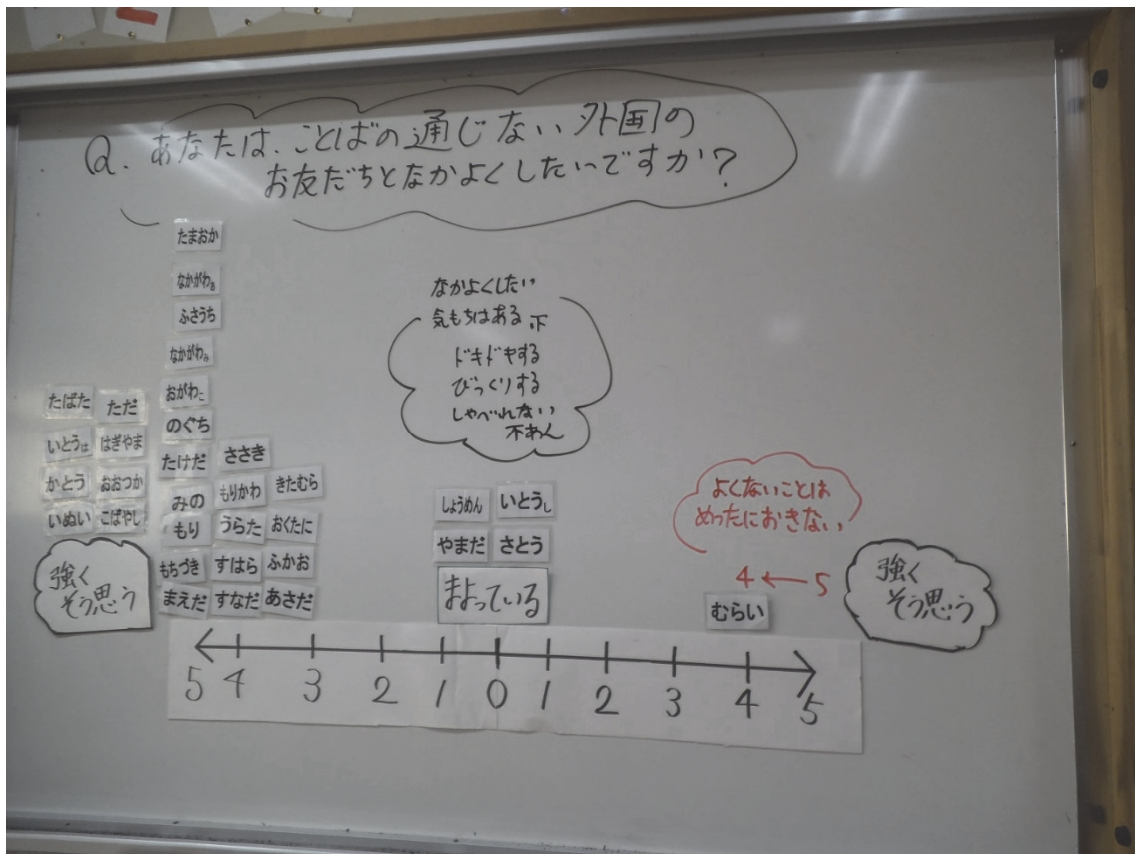 Q. あなたは、ことばの通じない外国の
お友だちとなかよくしたいですか?
たまおか
なかがわる
ふさうち
なかがわみ
おがわこ
のぐち
たけだ
みの
もり
もちづき
まえだ
たばた
ただ
いとうは
はぎやま
かとう
おおつか
いぬい
こばやし
強く
そう思う
ささき
もりかわ
きたむら
うらた
おくたに
すはら
ふかお
すなだ
あさだ
なかよくしたい
気もちはある
ドキドキする
びっくりする
しゃべれない
不あん
しょうめん
いとうし
やまだ
さとう
まよっている
よくないことは
めったにおきない
4 ← 5
むらい
強く
そう思う
5 4 3 2 1 0 1 2 3 4 5